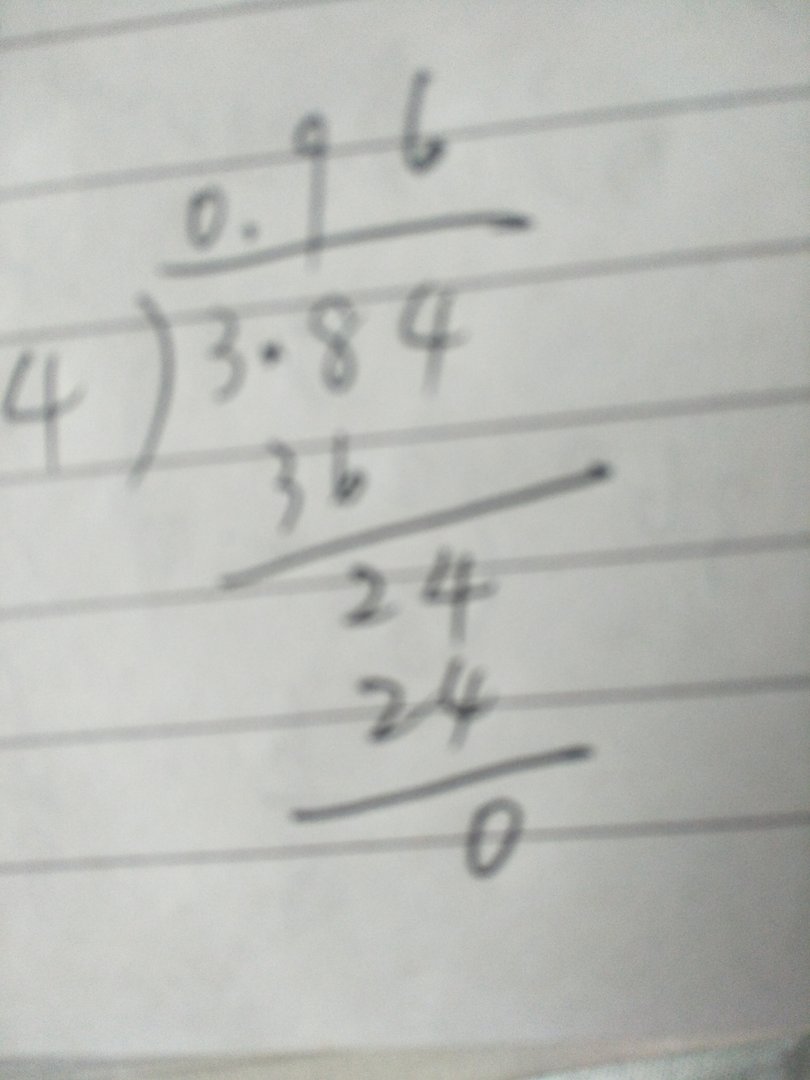 0.96
4)3.84
36
24
24
0